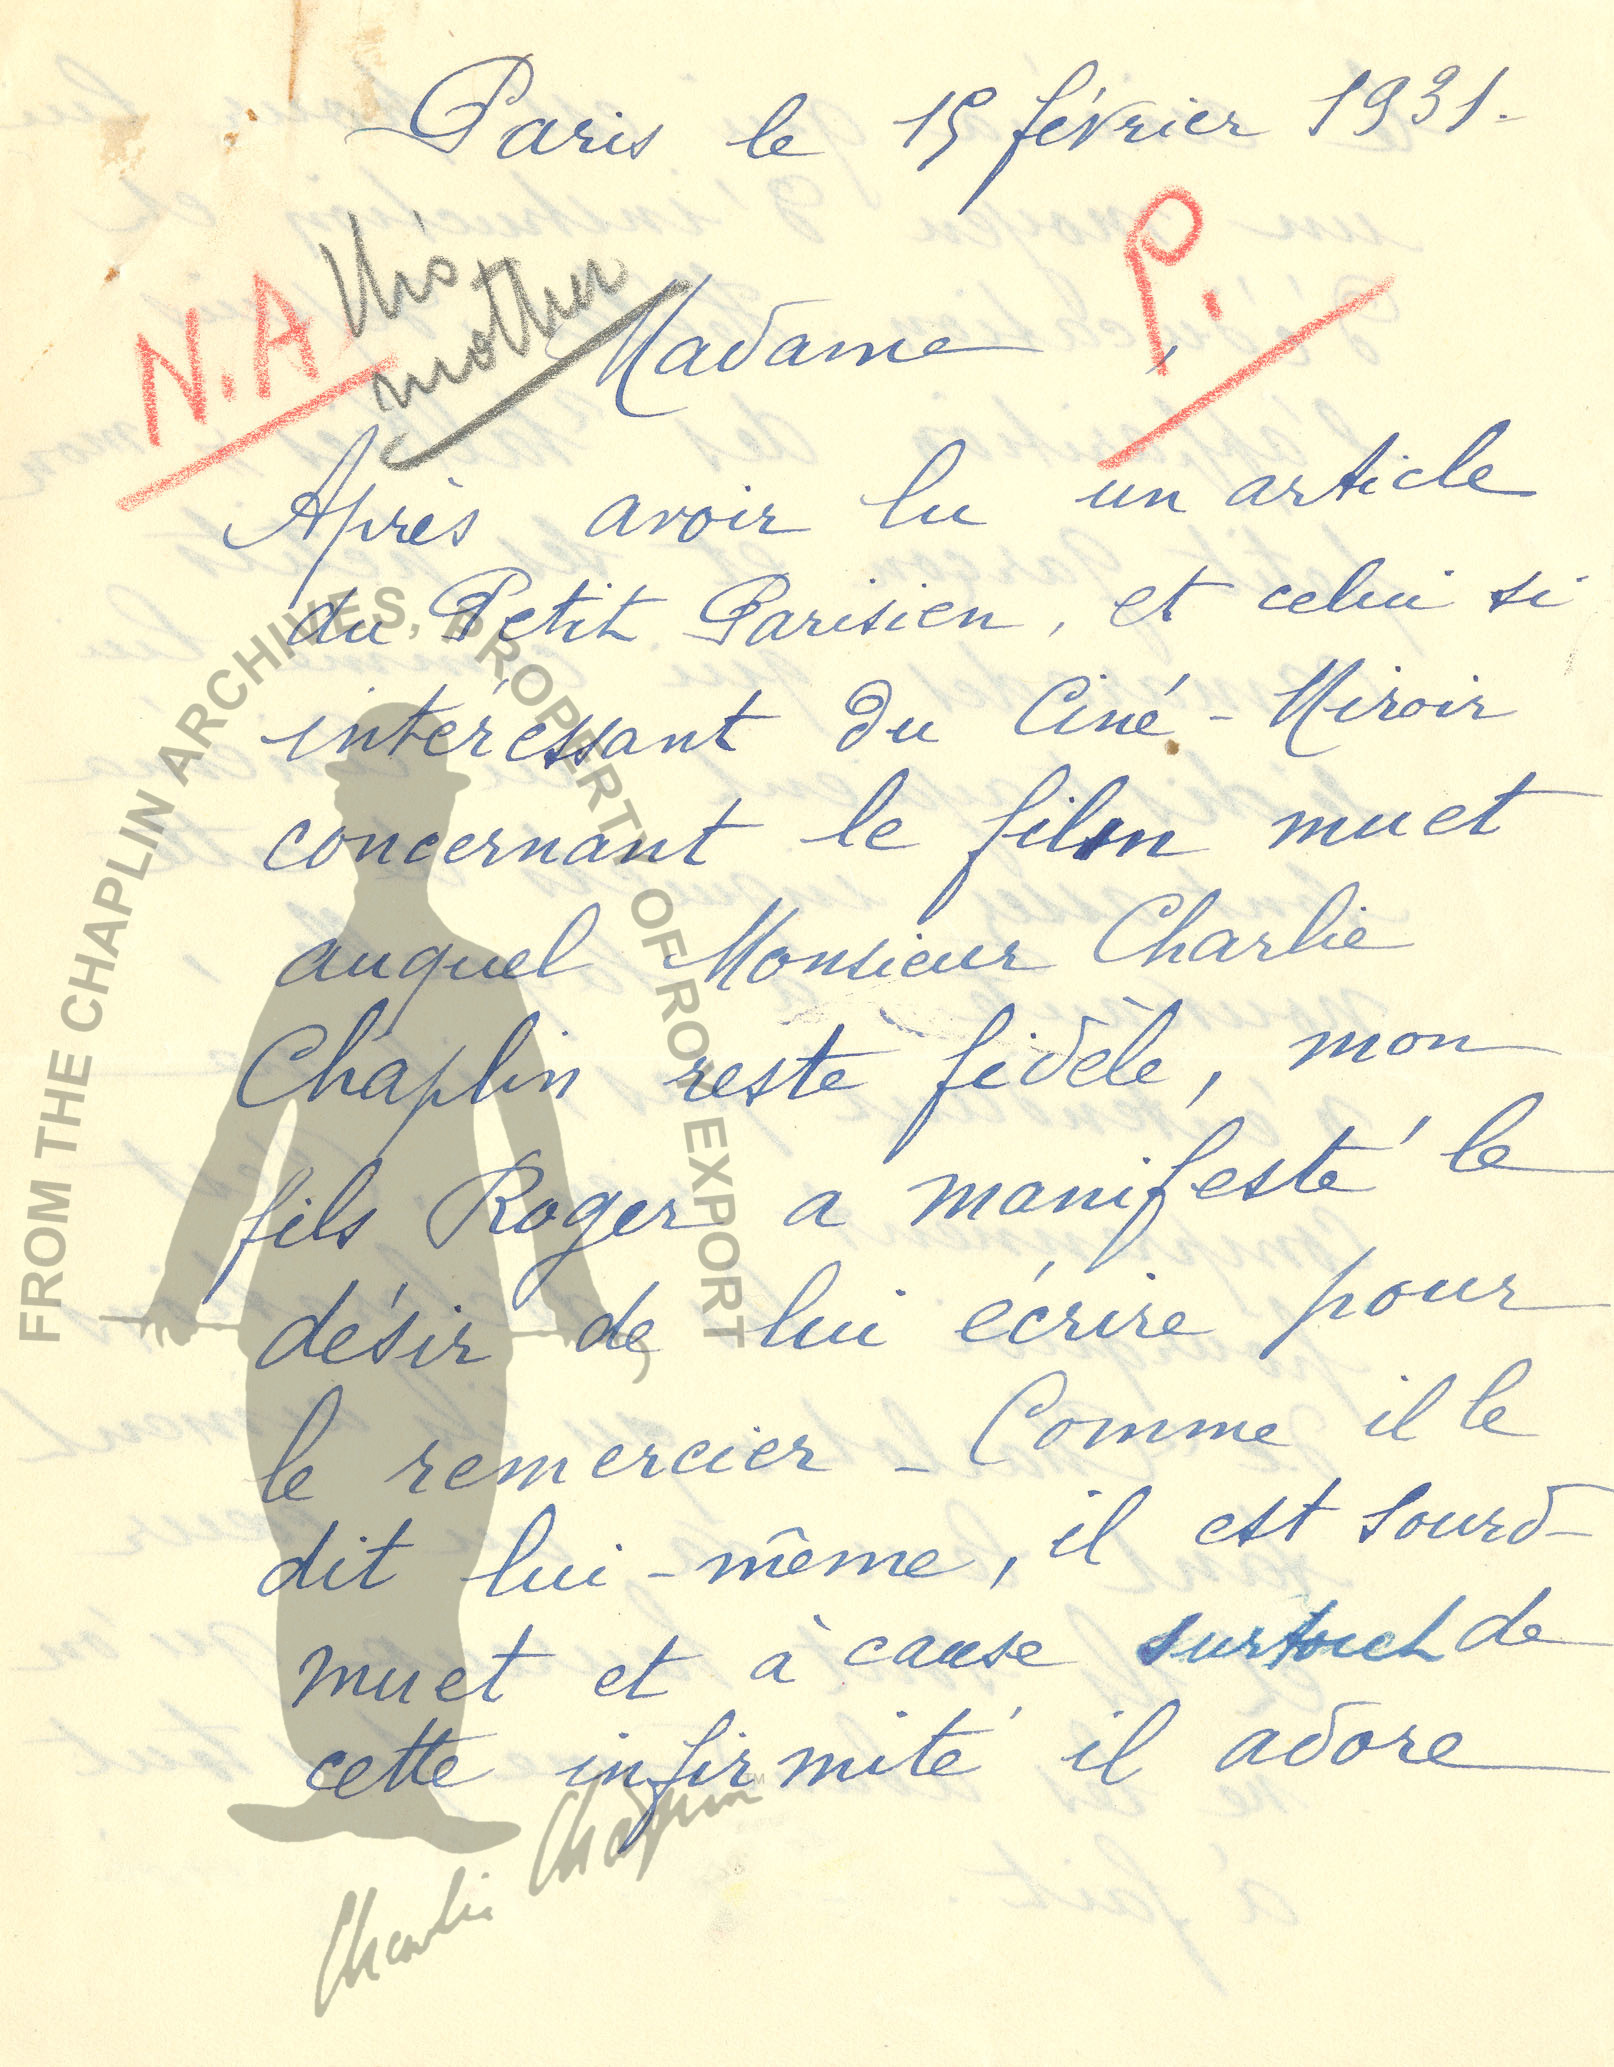 Paris le 15 février 1931.
N.A
His
mother
P.
Madame,
Après avoir lu un article
du Petit Parisien, et celui si
intéressant du Ciné-Miroir
concernant le film muet
auquel Monsieur Charlie
Chaplin reste fidèle, mon
fils Roger a manifesté le
désir de lui écrire pour
le remercier - Comme il le
dit lui-même, il est sourd-
muet et à cause surtout de
cette infirmité il adore
FROM THE CHAPLIN ARCHIVES, PROPERTY OF ROY EXPORT
Charlie Chaplin TM